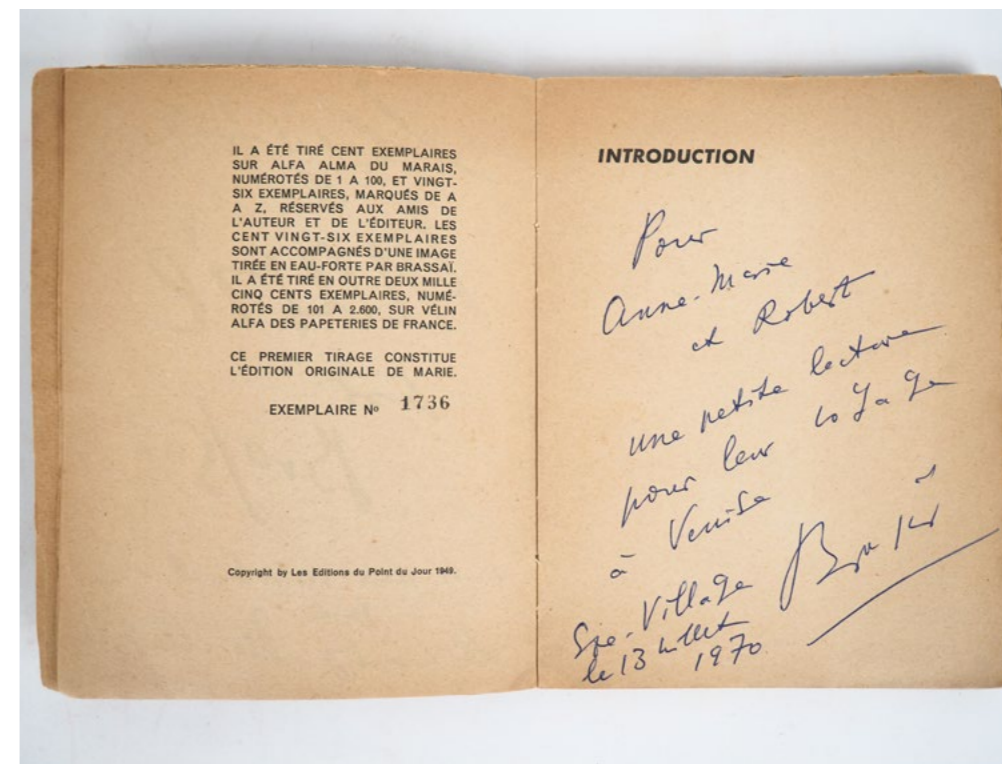 IL A ÉTÉ TIRÉ CENT EXEMPLAIRES
SUR ALFA ALMA DU MARAIS,
NUMÉROTÉS DE 1 A 100, ET VINGT-
SIX EXEMPLAIRES, MARQUÉS DE A
A Z, RÉSERVÉS AUX AMIS DE
L'AUTEUR ET DE L'ÉDITEUR. LES
CENT VINGT-SIX EXEMPLAIRES
SONT ACCOMPAGNÉS D'UNE IMAGE
TIRÉE EN EAU-FORTE PAR BRASSAÏ.
IL A ÉTÉ TIRÉ EN OUTRE DEUX MILLE
CINQ CENTS EXEMPLAIRES, NUMÉ-
ROTÉS DE 101 A 2.600, SUR VÉLIN
ALFA DES PAPETERIES DE FRANCE.
CE PREMIER TIRAGE CONSTITUE
L'ÉDITION ORIGINALE DE MARIE.
EXEMPLAIRE Nº 1736
Copyright by Les Editions du Point du Jour 1949.
INTRODUCTION
Pour
Anne-Marie
et Robert
une petite lecture
pour leur voyage
à Venise
Brassaï
Eze-Village
le 13 juillet
1970